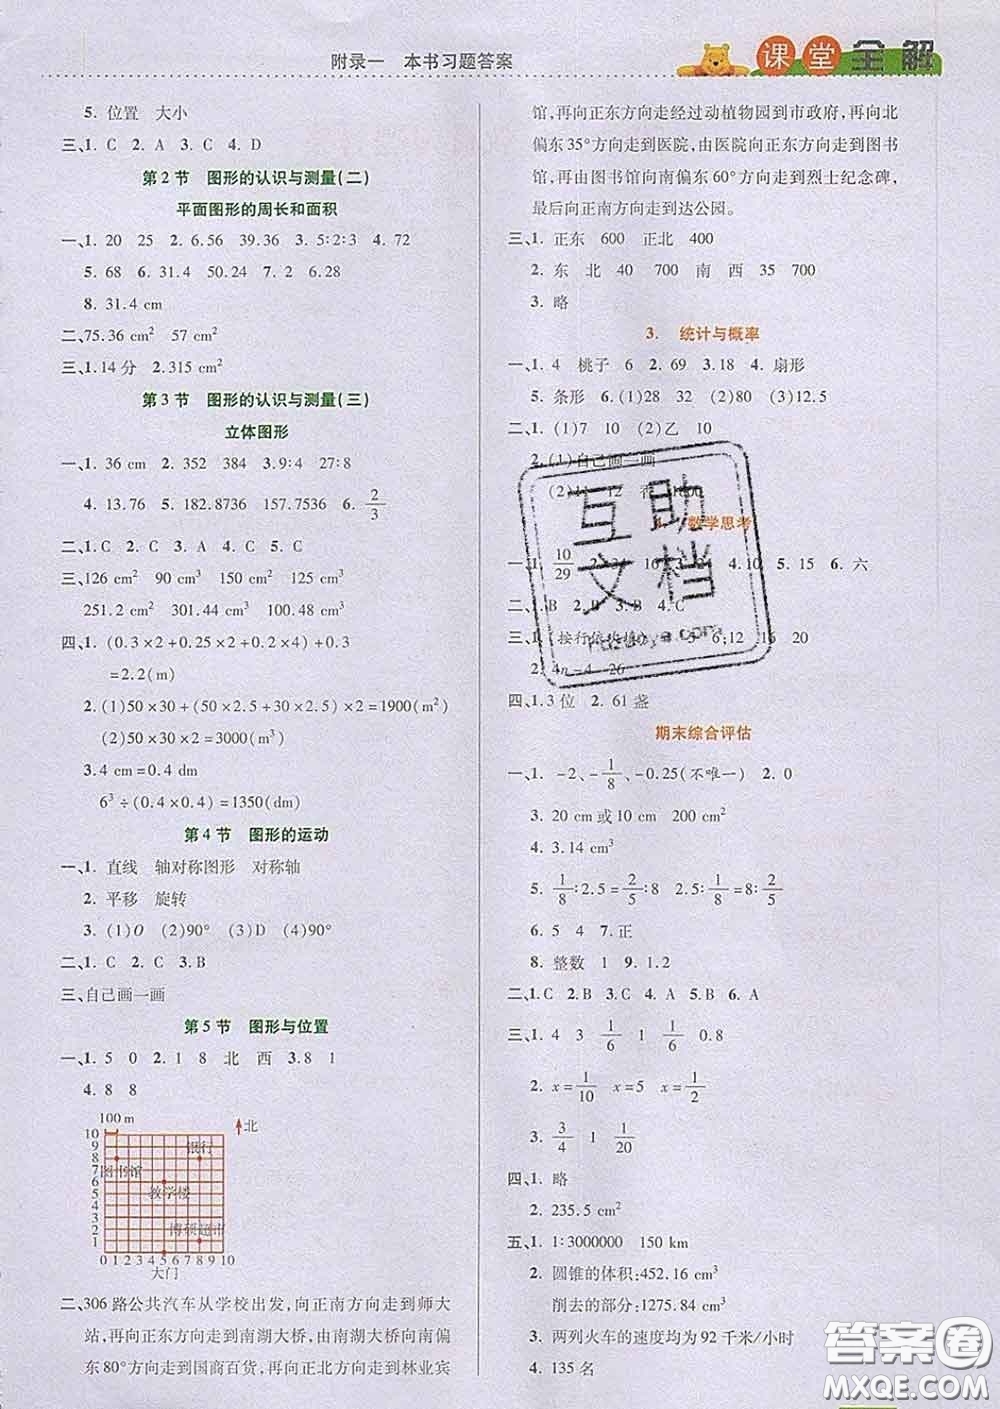 附录一　本书习题答案
课堂全解
5. 位置　大小
三、1. C　2. A　3. C　4. D
第2节　图形的认识与测量(二)
平面图形的周长和面积
一、1. 20　25　2. 6.56　39.36　3. 5∶2∶3　4. 72
5. 68　6. 31.4　50.24　7. 2　6.28
8. 31.4 cm
二、75.36 cm²　57 cm²
三、1. 14分　2. 315 cm²
第3节　图形的认识与测量(三)
立体图形
一、1. 36 cm　2. 352　384　3. 9∶4　27∶8
4. 13.76　5. 182.8736　157.7536　6. 2/3
二、1. C　2. A　3. C　4. B　5. C
三、126 cm²　90 cm³　150 cm²　125 cm³
251.2 cm²　301.44 cm³　100.48 cm³
四、1. (0.3×2+0.25×2+0.2×4)+0.3
=2.2(m)
2. (1)50×30+(50×2.5+30×2.5)×2=1900(m²)
(2)50×30×2=3000(m³)
3. 4 cm=0.4 dm
6³÷(0.4×0.4)=1350(dm)
第4节　图形的运动
一、1. 直线　轴对称图形　对称轴
2. 平移　旋转
3. (1)O　(2)90°　(3)D　(4)90°
二、1. C　2. C　3. B
三、自己画一画
第5节　图形与位置
一、1. 5　0　2. 1　8　北　西　3. 8　1
4. 8　8
100 m
北
10
9
8
7
6
5
4
3
2
1
银行
图书馆
教学楼
博硕超市
0 1 2 3 4 5 6 7 8 9 10
大门
二、306路公共汽车从学校出发,向正南方向走到师大
站,再向正东方向走到南湖大桥,由南湖大桥向南偏
东80°方向走到国商百货,再向正北方向走到林业宾
馆,再向正东方向走经过动植物园到市政府,再向北
偏东35°方向走到医院,由医院向正东方向走到图书
馆,再由图书馆向南偏东60°方向走到烈士纪念碑,
最后向正南方向走到达公园。
三、1. 正东　600　正北　400
2. 东　北　40　700　南　西　35　700
3. 略
3.　统计与概率
一、1. 4　桃子　6　2. 69　3. 18　4. 扇形
5. 条形　6. (1)28　32　(2)80　(3)12.5
二、1. (1)7　10　(2)乙　10
2. (1)自己画一画
(2)11　12
数学思考
一、1. 10/29　4. 10　5. 15　6. 六
二、1. B　2. B　3. B　4. C
三、1. (按行依次填)　5　6;12　16　20
2. 4n-4　26
四、1. 3位　2. 61盏
期末综合评估
一、1. -2、-1/8、-0.25(不唯一)　2. 0
3. 20 cm或10 cm　200 cm²
4. 3.14 cm³
5. 1/8∶2.5=2/5∶8　2.5∶1/8=8∶2/5
6. 5　4　7. 正
8. 整数　1　9. 1.2
二、1. C　2. B　3. C　4. A　5. B　6. A
三、1. 4　3　1/6　1　1/6　0.8
2. x=1/10　x=5　x=1/2
3. 3/4　1　1/20
四、1. 略
2. 235.5 cm³
五、1. 1∶3000000　150 km
2. 圆锥的体积:452.16 cm³
削去的部分:1275.84 cm³
3. 两列火车的速度均为92千米/小时
4. 135名
互助文档
答案圈
MXQE.COM